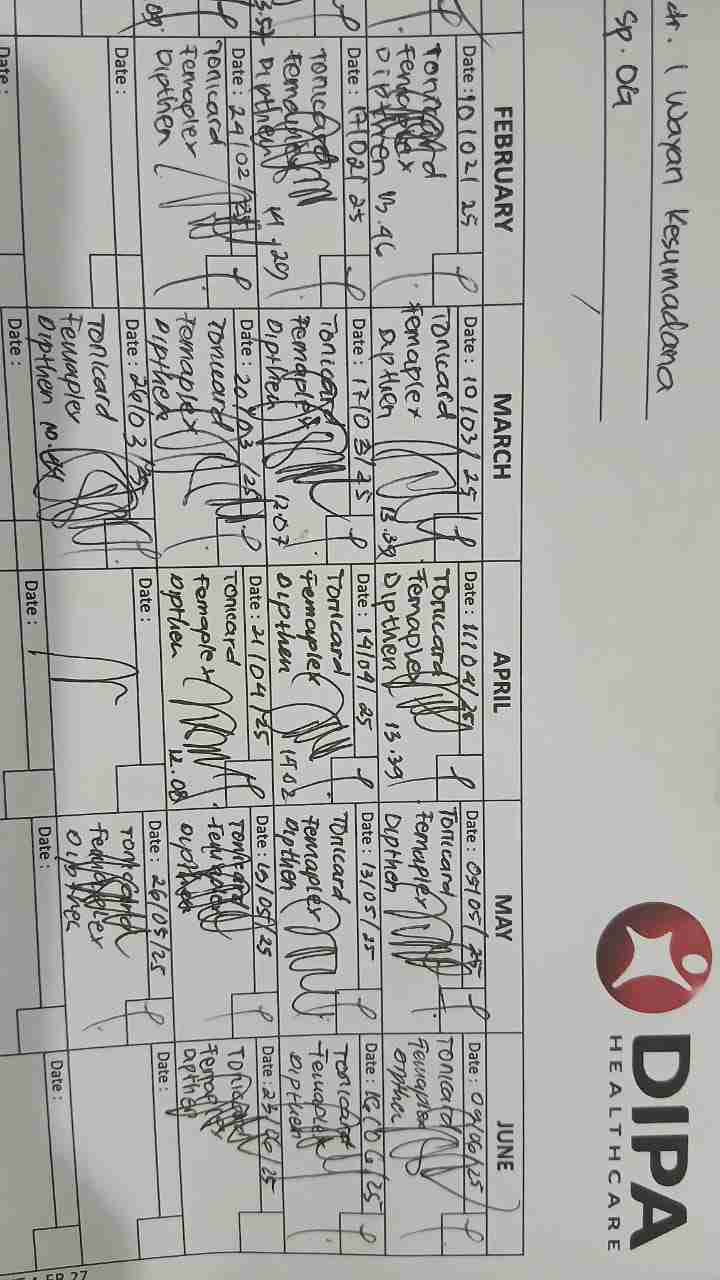 dr. I Wayan Kesumadana
Sp. OG
DIPA
HEALTHCARE
FEBRUARY
Date : 10/02/25
Tonicard
Femaplex
Dipthen 13.46
Date : 17/02/25
Tonicard
Femaplex
Dipthen 14.29
Date : 24/02/25
Tonicard
Femaplex
Dipthen
Date :
MARCH
Date : 10/03/25
Tonicard
Femaplex
Dipthen 13.39
Date : 17/03/25
Tonicard
Femaplex
Dipthen 12.07
Date : 20/03/25
Tonicard
Femaplex
Dipthen
Date : 26/03/25
Tonicard
Femaplex
Dipthen
Date :
APRIL
Date : /04/25
Tonicard
Femaplex
Dipthen 13.39
Date : 14/04/25
Tonicard
Femaplex
Dipthen 14.02
Date : 21/04/25
Tonicard
Femaplex
Dipthen 12.08
Date :
Date :
MAY
Date : 05/05/25
Tonicard
Femaplex
Dipthen
Date : 13/05/25
Tonicard
Femaplex
Dipthen
Date : /05/25
Tonicard
Femaplex
Dipthen
Date : 26/05/25
Tonicard
Femaplex
Dipthen
Date :
JUNE
Date : 09/06/25
Tonicard
Femaplex
Dipthen
Date : 16/06/25
Tonicard
Femaplex
Dipthen
Date : 23/06/25
Tonicard
Femaplex
Dipthen
Date :
Date :